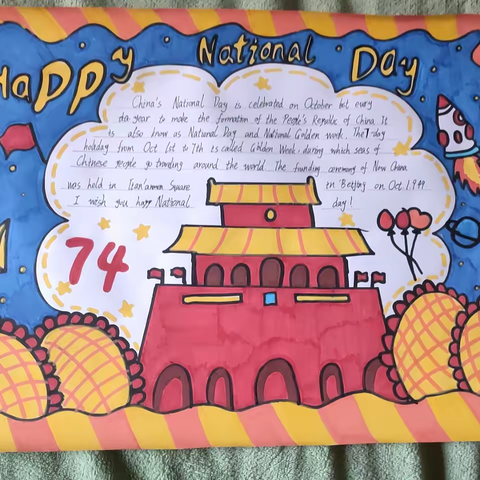 Happy National Day
China's National Day is celebrated on October 1st every
year to make the formation of the People's Republic of China It
is also know as National Day and National Golden week. The 7-day
holiday from Oct 1st to 7th is called Golden Week, during which seas of
Chinese people go traveling around the world The funding ceremony of New China
was held in Tian'anmen Square in Beijing on Oct. 1949
I wish you happy National day!
74